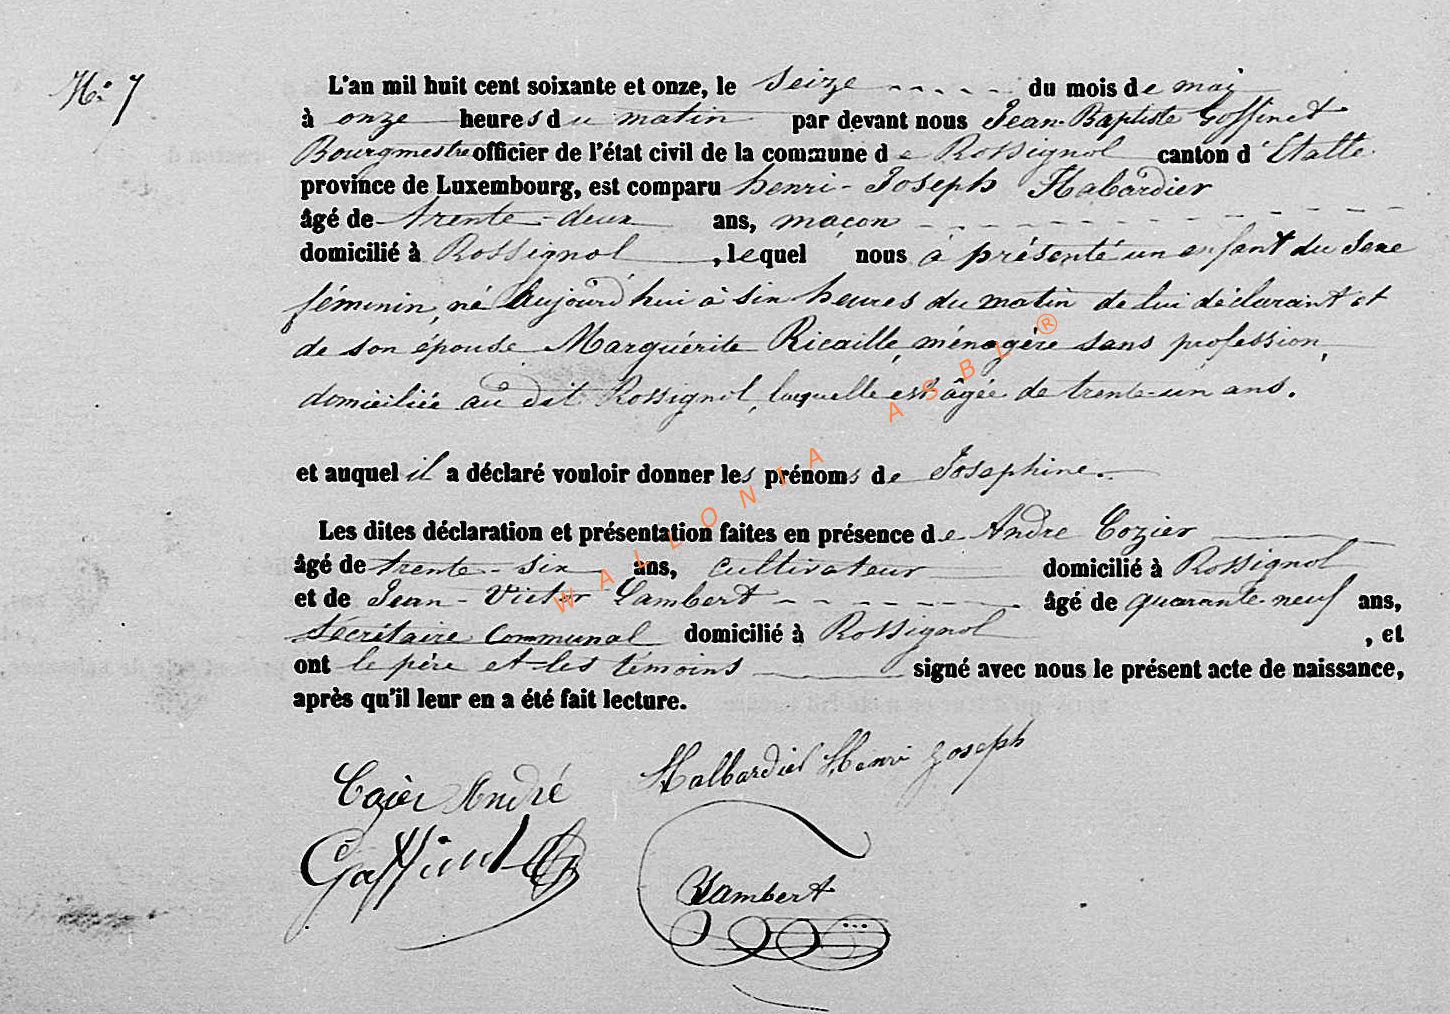 N° 7
L'an mil huit cent soixante et onze, le seize du mois de mai
à onze heures du matin par devant nous Jean-Baptiste Goffinet
Bourgmestre officier de l'état civil de la commune de Rossignol canton d'Etalle
province de Luxembourg, est comparu henri-Joseph Halbardier
âgé de trente-deux ans, maçon
domicilié à Rossignol, lequel nous à présenté un enfant du Sexe
féminin, né aujourd'hui à six heures du matin de lui déclarant et
de son épouse Marguérite Ricaille, ménagère sans profession,
domiciliée au dit Rossignol, laquelle est âgée de trente-un ans.
et auquel il a déclaré vouloir donner les prénoms de Joséphine.
Les dites déclaration et présentation faites en présence de André Cozier
âgé de trente-six ans, cultivateur domicilié à Rossignol
et de Jean-Victor Lambert âgé de quarante-neuf ans,
Sécrétaire Communal domicilié à Rossignol, et
ont le père et les témoins signé avec nous le présent acte de naissance,
après qu'il leur en a été fait lecture.
Cozier André Halbardier Henri Joseph
Goffinet
Lambert
WALLONIA ASBL ®